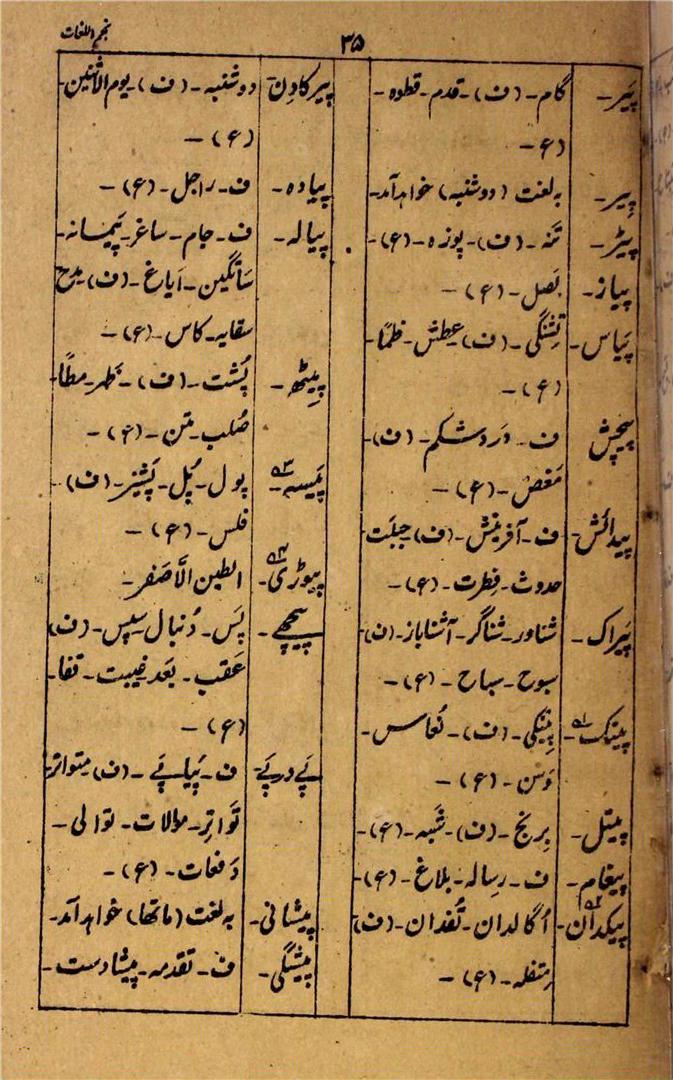 نجم اللغات
۳۵
پَیر۔ گام۔ (ف) قدم۔ قطوہ۔
(ع)۔
پِیر۔ بہ لغت (دوشنبہ) خواہد آمد۔
پیڑ۔ تنہ۔ (ف)۔ پوزہ۔ (ع)۔
پیاز۔ بَصل۔ (ع)۔
پَیاس۔ تِشنگی۔ (ف) عطش۔ ظمًا۔
(ع)۔
پیچِش ف۔ دَردِ شکم۔ (ف)۔
مَغص۔ (ع)۔
پیدائش۔ ف۔ آفرینش۔ (ف) جِبلّت
حدوث۔ فِطرت۔ (ع)۔
پَیراک۔ شناور۔ شناگر۔ آشناباز۔ (ف)۔
سبوح۔ سباح۔ (ع)۔
پینک۵۱۔ پِینکی۔ (ف)۔ نُعاس۔
وَسن۔ (ع)۔
پیتل۔ بِرنج۔ (ف)۔ شَبہ۔ (ع)۔
پیغام۔ ف۔ رِسالہ۔ بلاغ۔ (ع)۔
پیکدان۵۲۔ اُگالدان۔ تُفدان۔ (ف)۔
مِتفلہ۔ (ع)۔
پیر کا دِن۔ دوشنبہ۔ (ف)۔ یوم الاثنین۔
(ع)۔
پیادہ۔ ف۔ راجل۔ (ع)۔
پیالہ۔ ف۔ جام۔ ساغر۔ پَیمانہ۔
سَاتگین۔ اَیاغ۔ (ف)
سقایہ۔ کاس۔ (ع)۔
پِیٹھ۔ پُشت۔ (ف)۔ ظہر۔ مطًا۔
صُلب۔ متن۔ (ع)۔
پَیسہ۵۳۔ پول۔ پُل۔ پَشیز۔ (ف)۔
فلس۔ (ع)۔
پیوڑی۵۴۔ الطین الاَصفر۔
پیچھے۔ پَس۔ دُنبال۔ سِپس۔ (ف)
عَقب۔ بَعد۔ غیبت۔ قفا۔
(ع)۔
پَے در پَے۔ ف۔ پَیاپَے۔ (ف) متواتر۔
تَواتِر۔ موالات۔ توالی۔
دَفعات۔ (ع)۔
پیشانی۔ بہ لغت (ماتھا) خواہد آمد۔
پیشگی۔ ف۔ تقدمہ۔ پیشادست۔